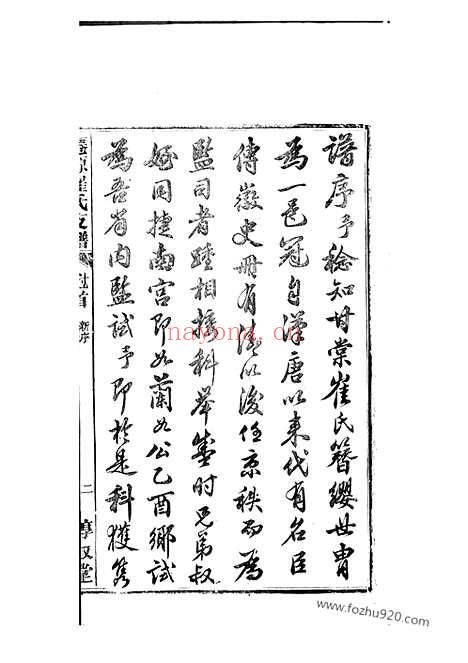 譜序予稔知甘棠崔氏簪纓世胄
為一邑冠自漢唐以來代有名臣
傳徽史冊有清以後任京秩而為
監司者踵相接科舉盛時兄弟叔
姪同捷南宮即如蘭如公乙酉鄉試
為吾省內監試予即於是科獲雋
崔氏支譜 卷首 新序
二
敦叙堂
nayona.cn
www.fozhu920.com